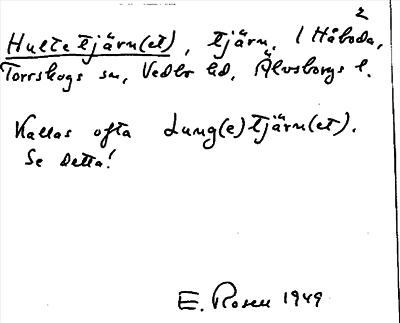 2
Hultetjärn(et), tjärn, i Håboda,
Torrskogs sn, Vedbo hd, Älvsborgs l.
Kallas ofta Lung(e)tjärn(et).
Se detta!
E. Rosen 1949